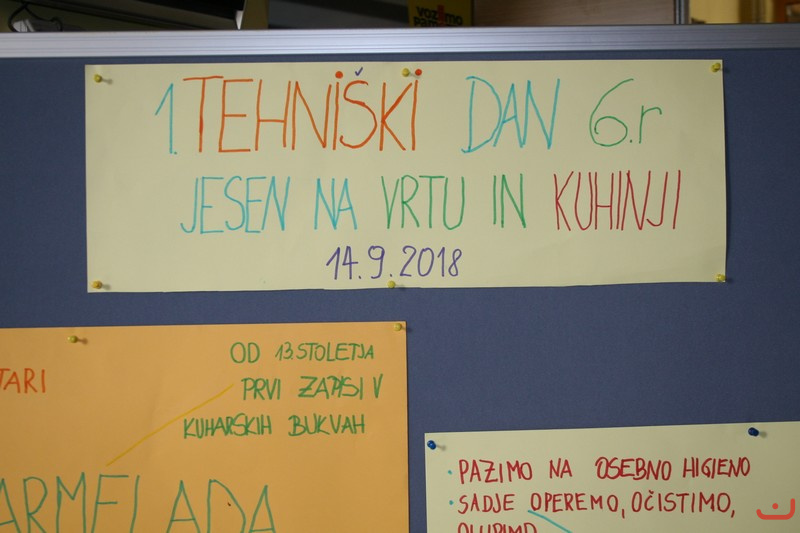 1. TEHNIŠKI DAN 6.r
JESEN NA VRTU IN KUHINJI
14.9.2018
OD 13.STOLETJA
PRVI ZAPISI V
KUHARSKIH BUKVAH
TARI
ARMELADA
• PAZIMO NA OSEBNO HIGIENO
• SADJE OPEREMO, OČISTIMO,
OLUPIMO